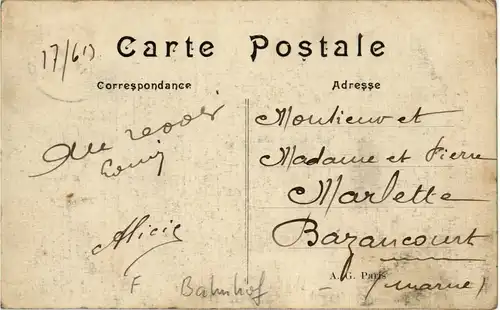 17/6
Carte Postale
Correspondance
Adresse
Au revoir
Alicie
Monsieur et
Madame et Pierre
Marlette
Bazancourt
(marne)
A. G. Paris
F Bahnhof